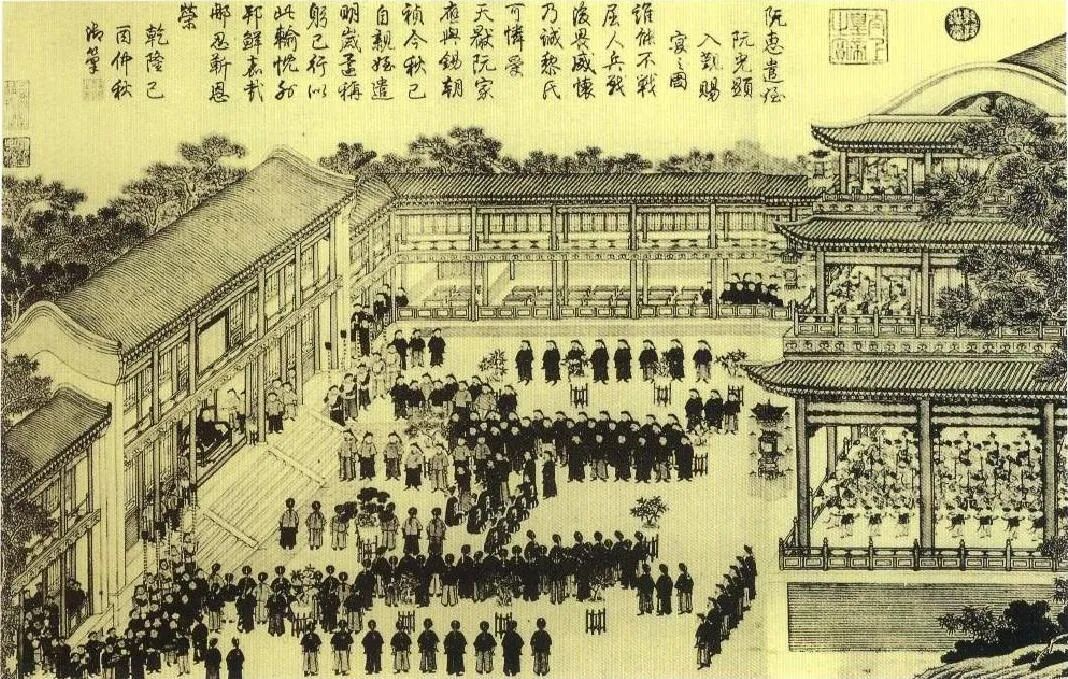 阮惠遣姪
阮光顯
入覲賜
宴之圖
誰能不戰
屈人兵戰
後畏威懷
乃誠黎氏
可憐受
天厭阮家
應與錫朝
禎今秋已
自親姪遣
明歲還稱
躬己行似
此輸忱外
邦鮮嘉哉
那忍靳恩
榮
乾隆己
酉仲秋
御筆